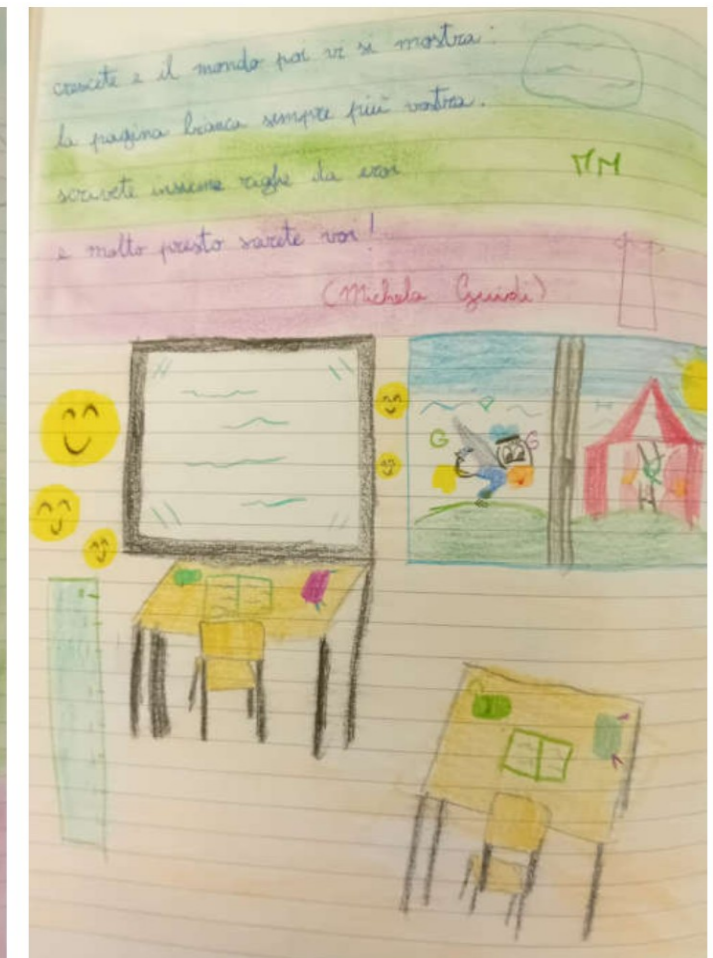 crescete e il mondo poi vi si mostra:
la pagina bianca sempre più vostra.
scrivete insieme righe da eroi
MM
e molto presto sarete voi!
(Michela Guidi)
G G